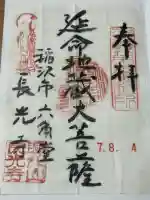 奉拝
延命地蔵大菩薩
稲沢市六角堂
長光寺
7.8.4